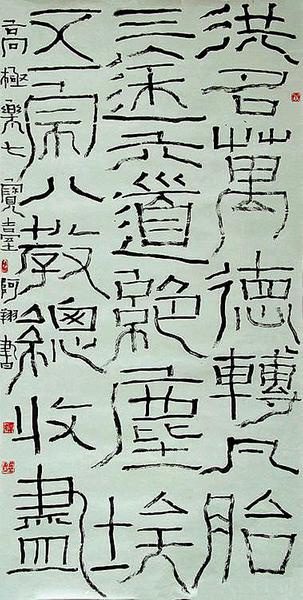 洪名萬德轉凡胎
三途六道絕塵埃
五宗八教總收盡
高極樂七寶臺 阿翔書